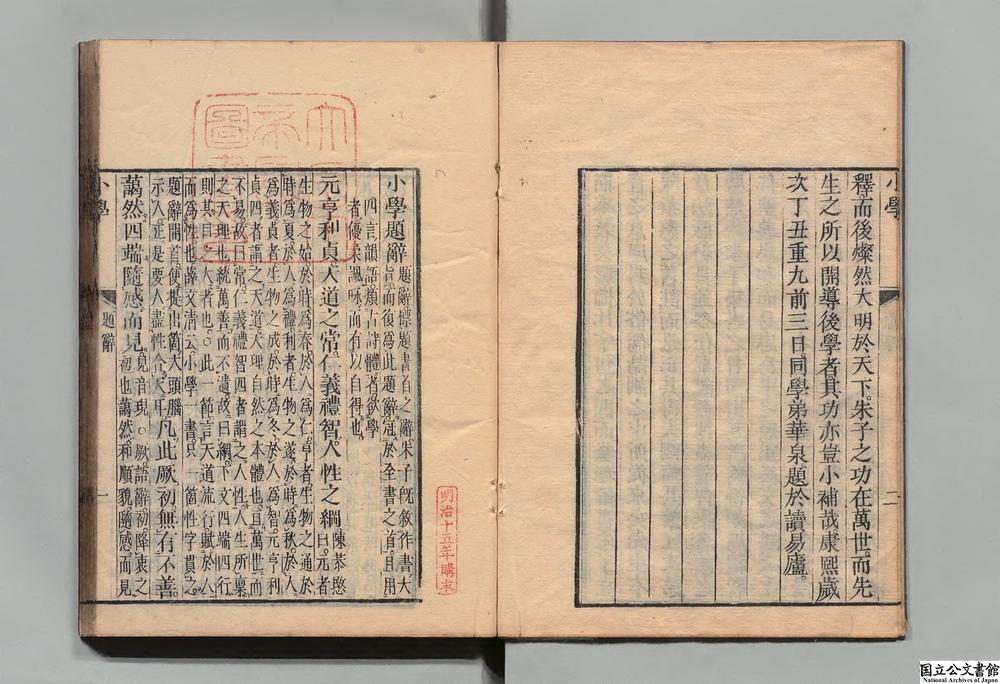 釋而後燦然大明於天下。朱子之功在萬世而先
生之所以開導後學者其功亦豈小補哉康熙歲
次丁丑重九前三日。同學弟華泉題於讀易廬。
小學
二
小學題辭 題辭標題書首之辭朱子既敘作書大
旨而復為此題辭。冠於全書之首。且用
四言韻語類古詩體者欲學
者優柔諷咏而有以自得也。
元亨利貞。天道之常。仁義禮智。人性之綱。陳恭愍
曰。元者
生物之始於時為春於人為仁。亨者。生物之通於
時為夏於人為禮利者生物之遂於時為秋。於人
為義貞者生物之成。於時為冬。於人為智。元亨利
貞四者謂之天道天理自然之本體也。亘萬世而
不易。故曰常。仁義禮智四者謂之人性。人生所稟
之天理也統萬善而不遺。故曰綱。下文四端四行
則其目之大者也。○此一節。言天道流行賦於人
而為性也薛文清云。小學一書只一箇性字貫之。
題辭開首便提出箇大頭腦
示人。正是要人盡性合天耳。凡此厥初無有不善。
藹然四端隨感而見。見音現。○厥。語辭初降衷之
初也藹然。和順貌隨感而見
小學
題辭
一
明治十五年購求
国立公文書館
National Archives of Japan